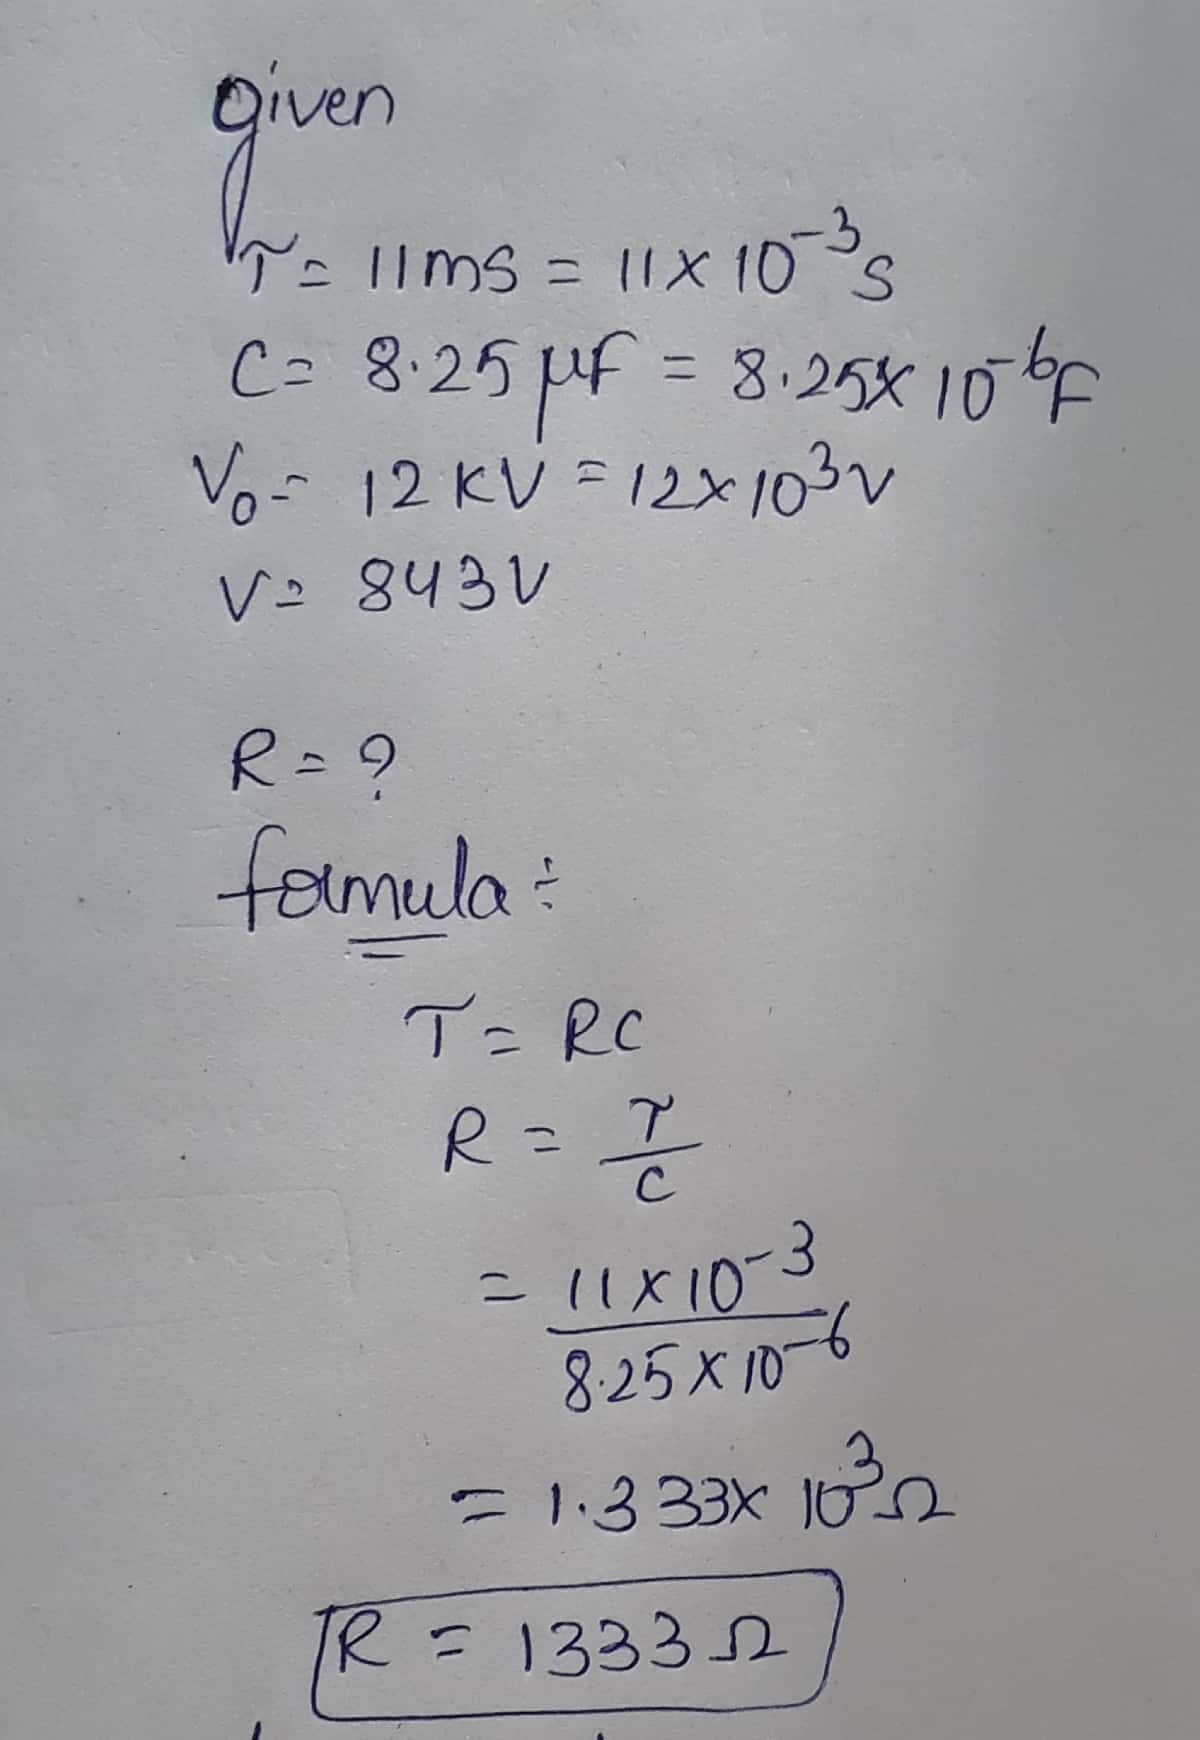 given
τ = 11ms = 11 × 10⁻³s
C = 8.25 μf = 8.25× 10⁻⁶F
V₀ = 12 KV = 12×10³V
V = 843V
R = ?
formula ÷
τ = RC
R = τ/C
= 11×10⁻³
8.25 × 10⁻⁶
= 1.333× 10³Ω
R = 1333 Ω